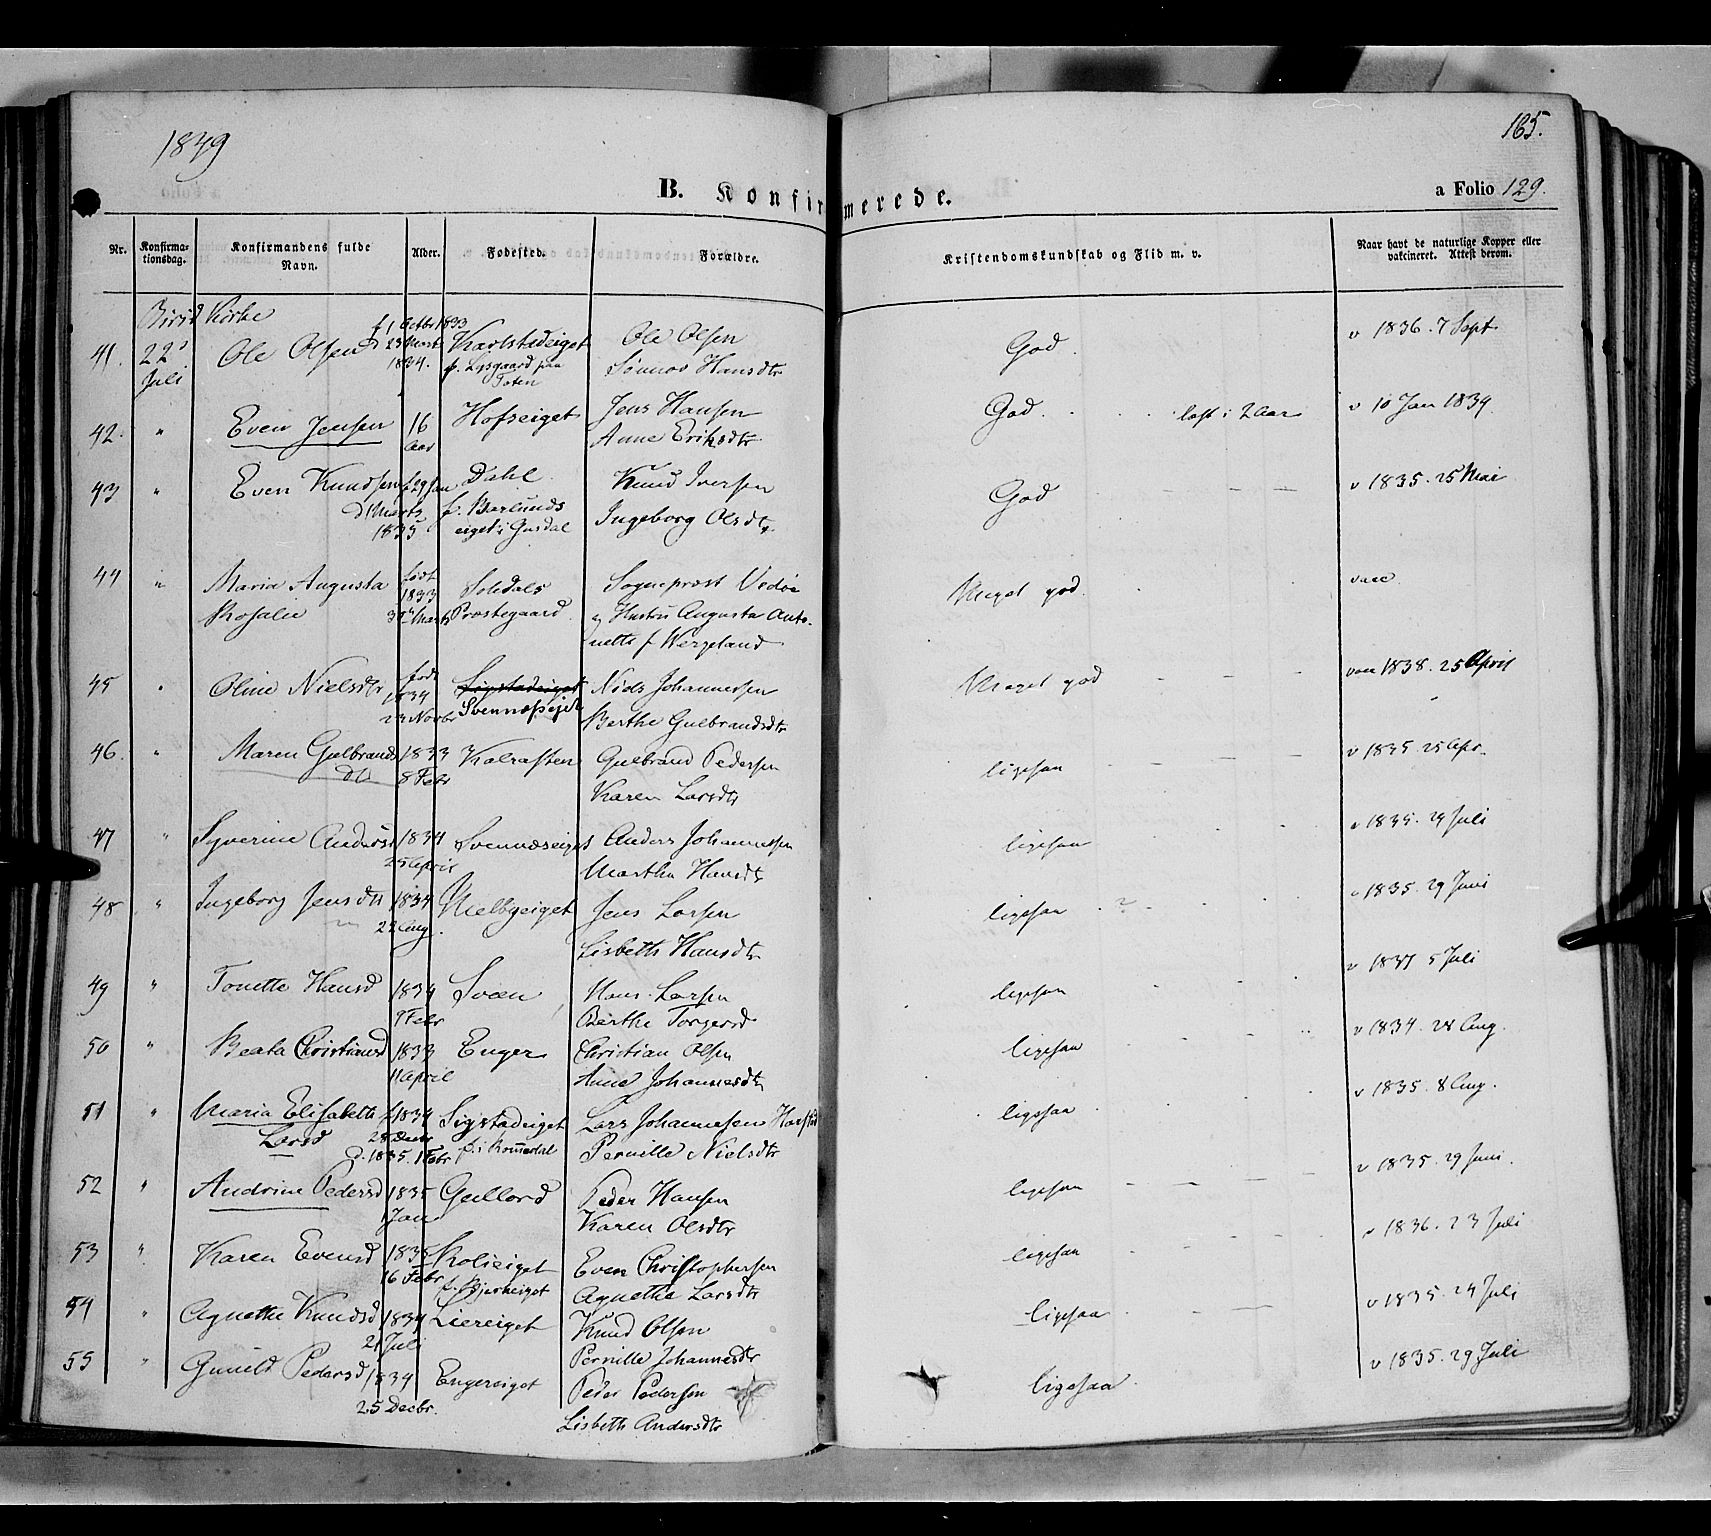 1849
165.
B. Konfirmerede.
a Folio 129.
Nr. Konfirma-tionsdag. Konfirmandens fulde Navn. Alder. Fødested. Forældre. Kristendomskundskab og Flid m. v. Naar havt de naturlige Kopper eller vakcineret. Attest derom.
Birid Kirke
41. 22 Juli Ole Olsen f 1 Octbr 1833 d 23 Mart 1834. Karlstadeiget f. Lysgaard paa Toten Ole Olsen God. v 1836. 7 Sept
Hansdtr
42. " Even Jensen 16 Aar Hofseiget Jens Hansen God. last i 2 Aar v 10 Jan 1839.
Anne Eriksdtr
43 " Even Knudsen d 1 Marts 1835 Dahl f. eiget i Gusdal Knud Iversen God v 1835. 25 Mai
Ingeborg Olsdtr
44 " Maria Augusta født 1833 Prostegaard Sogneprest Meget god. vacc
Rosalie og Hustru Augusta Anto-
nette f Wergeland
45 " Oline Nielsdtr født 1834 23 Novbr Svennæsejet Niels Johannessen Meget god vacc 1838. 25 April
Berthe Gulbrandsdtr
46. " Maren Gulbrands dtr 1833 8 Febr Kalrasten Gulbrand Pedersen ligesaa v 1835 25 Apr.
Karen Larsdtr
47 " Syverine Andersd 1834 25 April Svennæseiget Anders Johannessen ligesaa v 1835. 29 Juli
Martha Hansdtr
48 " Ingeborg Jensdtr 1834 Aug. Melbyeiget Jens Larsen ligesaa ? v 1835. 29 Juni
Lisbeth Hansdtr
49 " Tonette Hansd 1834 Febr Sveen Hans Larsen ligesaa v 1837 5 Juli
Berthe Torgersd
50 " Beata Christiansd 1833 11 April Enger Christian Olsen ligesaa v 1834. 28 Aug.
Anne Johannesdtr
51 " Maria Elisabeth Larsd f 1834 28 Decbr d. 1835. 1 Febr Sigstadeiget f. i Romedal Lars Johannesen ligesaa v 1835. 8 Aug.
Pernille Nielsdtr
52 " Andrine Pedersd 1835 1 Jan Gullord Peder Hansen ligesaa v 1835. 29 Juni.
Karen Olsdtr
53 " Karen Evensd 1835 16 Febr Rolieiget f. Bjerkeiget Even Christophersen ligesaa v 1836. 23 Juli
Agnethe Larsdtr
54 " Agnethe Knudsd 1834 21 Juli Liereiget Knud Olsen ligesaa v 1835. 29 Juli
Pernille Johannesdtr
55 " Gunild Pedersd 1834 25 Decbr. Engereiget Peder Pedersen ligesaa. v 1835. 29 Juli
Lisbeth Andersdtr